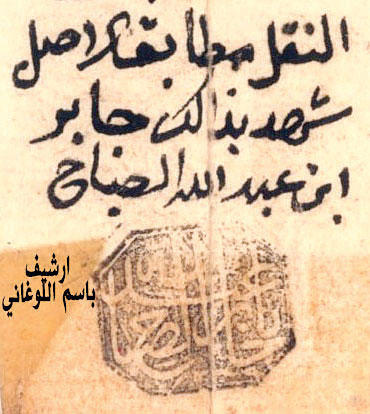 النقل مطابق للاصل
شهد بذالك جابر
ابن عبدالله الصباح
ارشيف
باسم اللوغاني